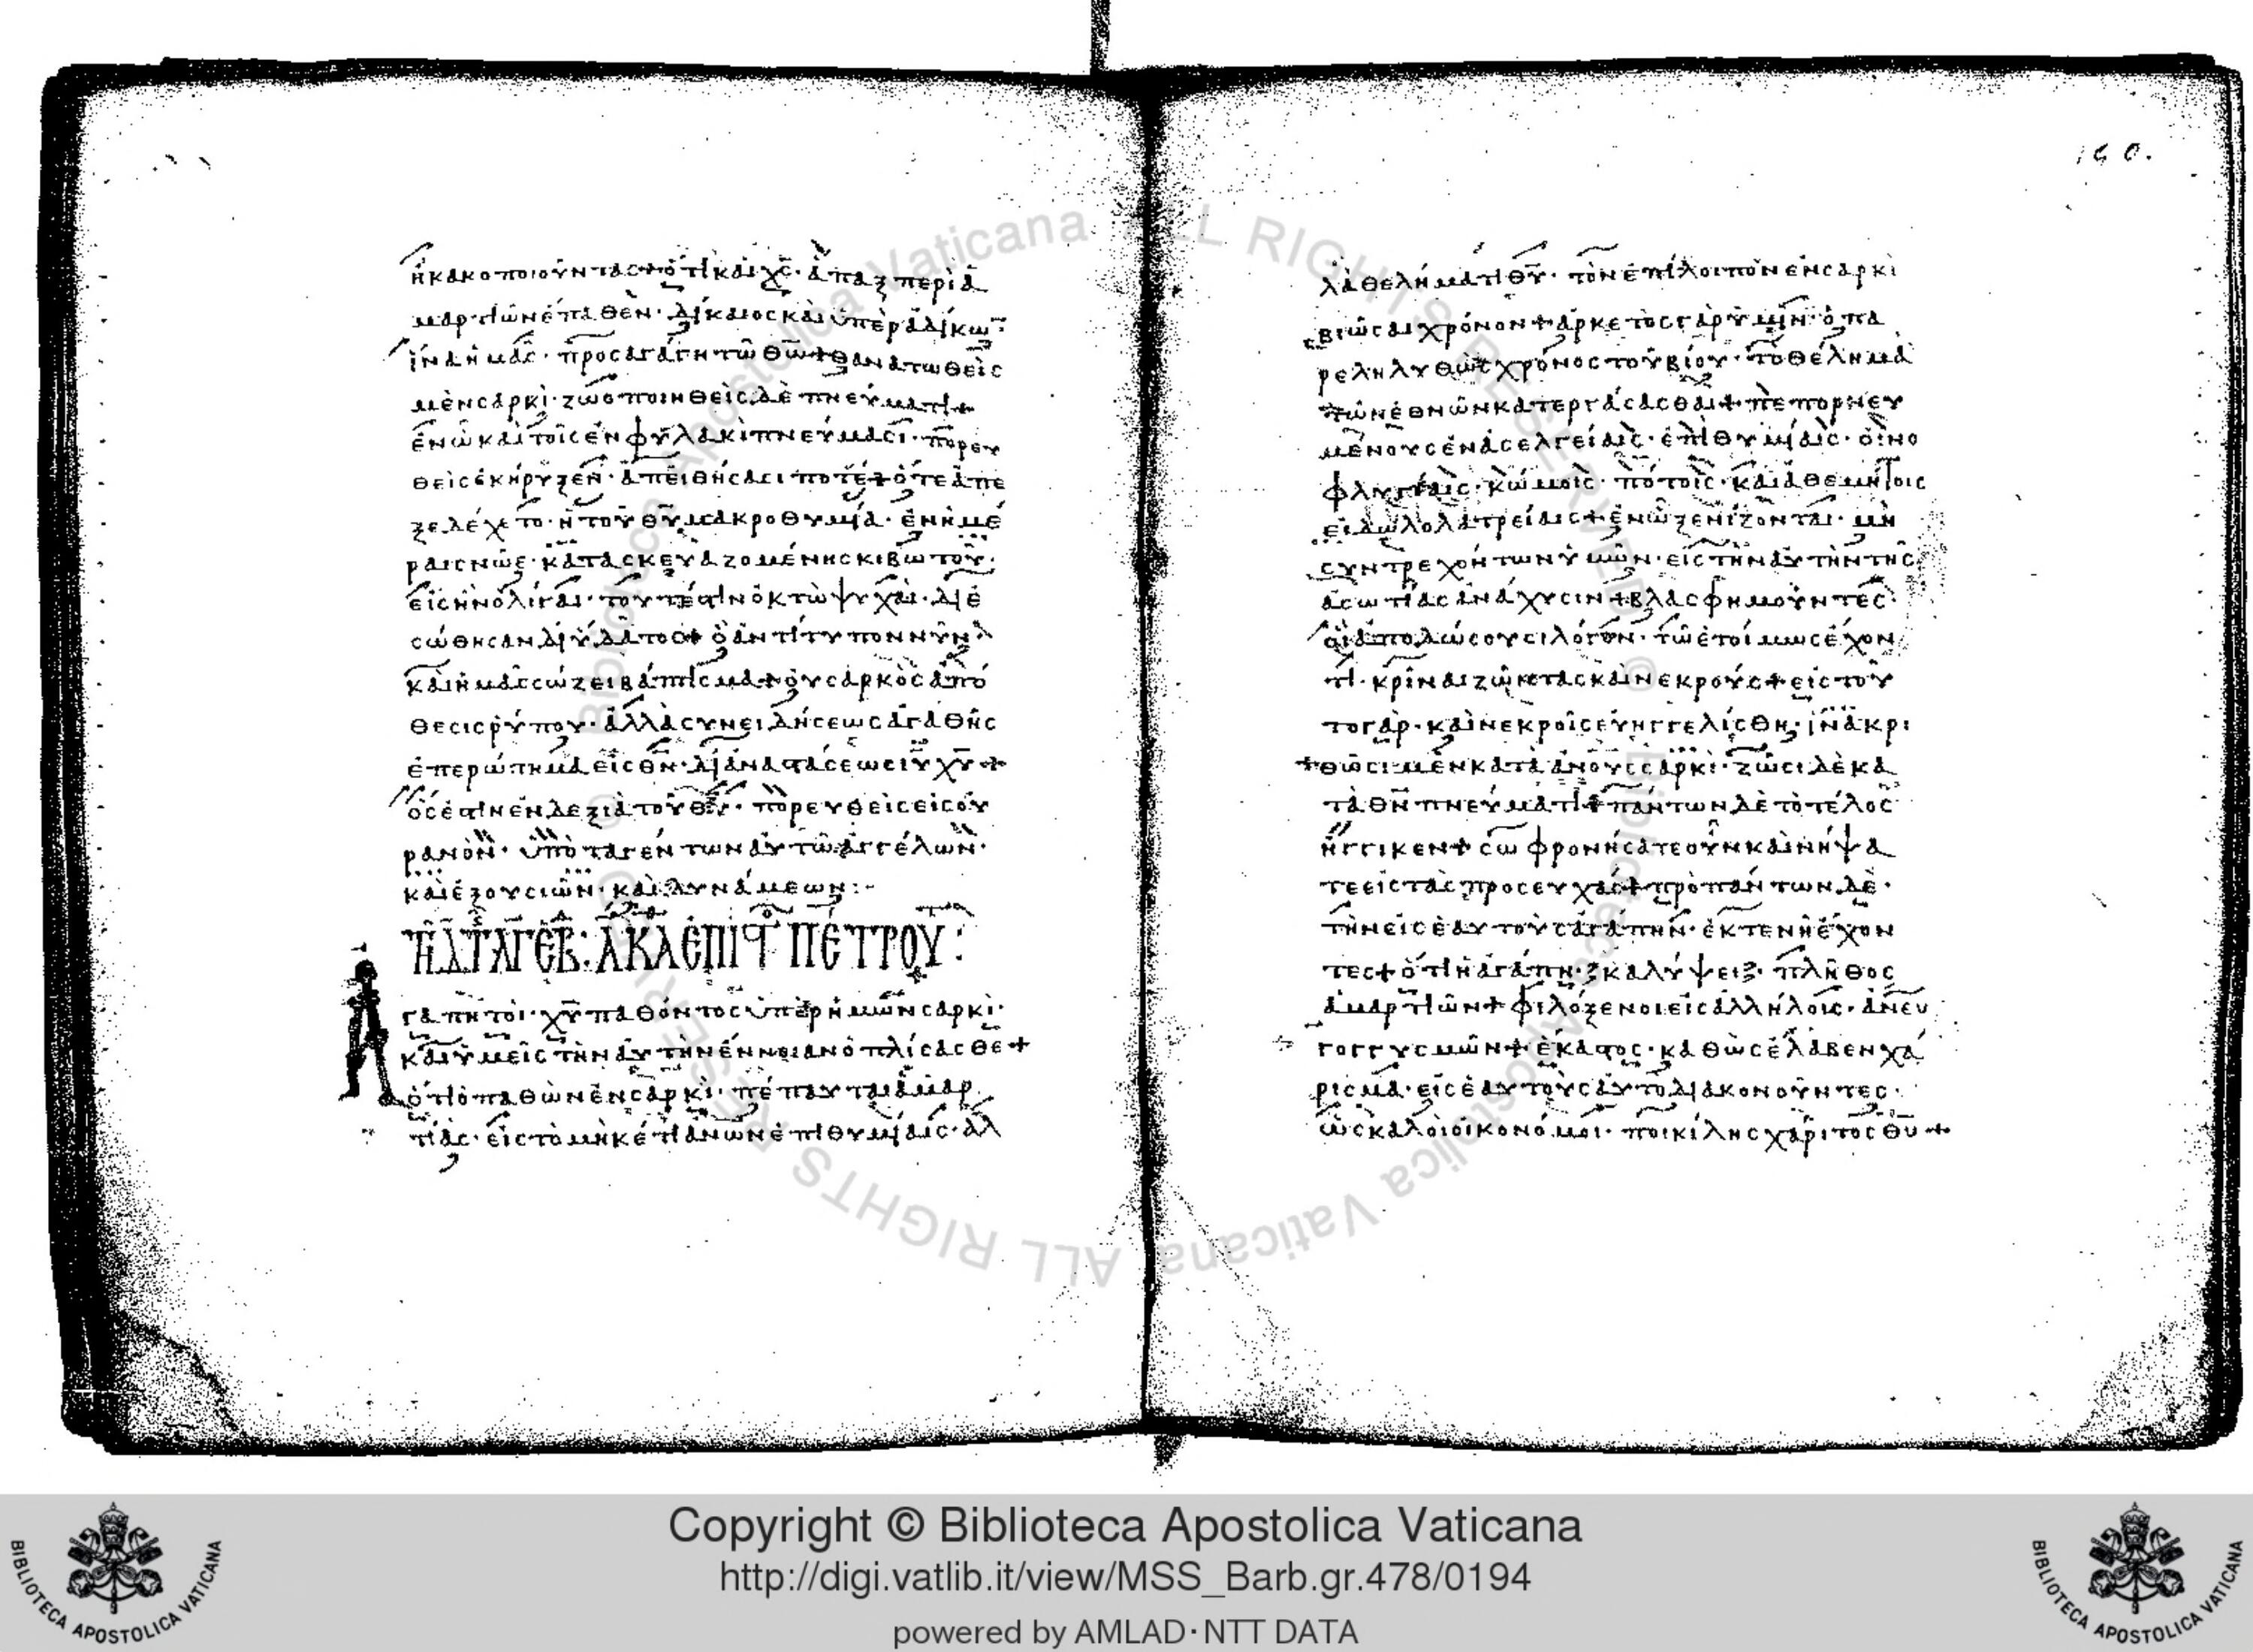 ἢ κακοποιοῦντας + ὅτι καὶ χς · ἅπαξ περὶ ἁ
μαρτιῶν ἔπαθεν · δίκαιος καὶ ὑπὲρ ἀδίκω
ἵνα ἡμᾶς · προσαγάγη τῶ θῶ + θανατωθεὶς
μὲν σαρκὶ · ζωοποιηθεὶς δὲ πνεύματι +
ἐν ῶ καὶ τοῖς ἐν φυλακὶ πνεύμασι · πορευ
θεὶς ἐκήρυξεν · ἀπειθήσασι ποτέ + ὅτε ἀπε
ξελέχετο · ἡ τοῦ θυ μακροθυμία · ἐν ἡμέ
ραις νῶε · κατασκευαζομένης κιβωτοῦ ·
εἰς ἣν ὀλίγαι · τουτέστιν ὀκτὼ ψυχαὶ · διε
σώθησαν δι' ὕδατος + ὃ ἀντίτυπον νῦν
καὶ ἡμᾶς σώζει βάπτισμα + οὐ σαρκὸς ἀπό
θεσις ρύπου · ἀλλὰ συνειδήσεως ἀγαθῆς
ἐπερώτημα εἰς θν · δι' ἀναστάσεως ιυ χυ +
ὅς ἐστιν ἐν δεξιὰ τοῦ θυ · πορευθεὶς εἰς οὐ
ρανὸν · ὑποταγέντων αὐτῶ ἀγγέλων ·
καὶ ἐξουσιῶν · καὶ δυνάμεων :-
ΠΕΤΡΟΥ :
Ἀγαπητοὶ · χυ παθόντος ὑπὲρ ἡμῶν σαρκὶ ·
καὶ ὑμεῖς τὴν αὐτὴν ἔννοιαν ὁπλίσασθε +
ὅτι ὁ παθὼν ἐν σαρκὶ · πέπαυται ἁμαρ
τίας · εἰς τὸ μηκέτι ἀνων ἐπιθυμίαις · ἀλ
160.
λὰ θελήματι θυ · τὸν ἐπίλοιπον ἐν σαρκὶ
βιῶσαι χρόνον + ἀρκετὸς γὰρ ὑμῖν · ὁ πα
ρεληλυθὼς χρόνος τοῦ βίου · τὸ θέλημα
τῶν ἐθνῶν κατεργάσασθαι + πεπορνευ
μένους ἐν ἀσελγείαις · ἐπιθυμίαις · οἰνο
φλυγίαις · κώμοις · πότοις · καὶ ἀθεμίτοις
εἰδωλολατρείαις + ἐν ῶ ξενίζονται · μὴ
συντρεχόντων ὑμῶν · εἰς τὴν αὐτὴν τῆς
ἀσωτίας ἀνάχυσιν + βλασφημοῦντες
οἳ ἀποδώσουσι λόγον · τῶ ἑτοίμως ἔχον
τι · κρῖναι ζῶντας καὶ νεκρούς + εἰς τοῦ
το γὰρ · καὶ νεκροῖς εὐηγγελίσθη · ἵνα κρι
+ θῶσι μὲν κατὰ ἀνους σαρκὶ · ζῶσι δὲ κα
τὰ θν πνεύματι + πάντων δὲ τὸ τέλος
ἤγγικεν + σωφρονήσατε οὖν καὶ νήψα
τε εἰς τὰς προσευχάς + πρὸ πάντων δὲ ·
τὴν εἰς ἑαυτοὺς ἀγάπην · ἐκτενῆ ἔχον
τες + ὅτι ἡ ἀγάπη · καλύψει · πλῆθος
ἁμαρτιῶν + φιλόξενοι εἰς ἀλλήλοις · ἄνευ
γογγυσμῶν + ἕκαστος · καθὼς ἔλαβεν χά
ρισμα · εἰς ἑαυτοὺς αὐτὸ διακονοῦντες ·
ὡς καλοὶ οἰκονόμοι · ποικίλης χάριτος θυ +
Copyright © Biblioteca Apostolica Vaticana
http://digi.vatlib.it/view/MSS_Barb.gr.478/0194
powered by AMLAD·NTT DATA
BIBLIOTECA APOSTOLICA VATICANA
BIBLIOTECA APOSTOLICA VATICANA